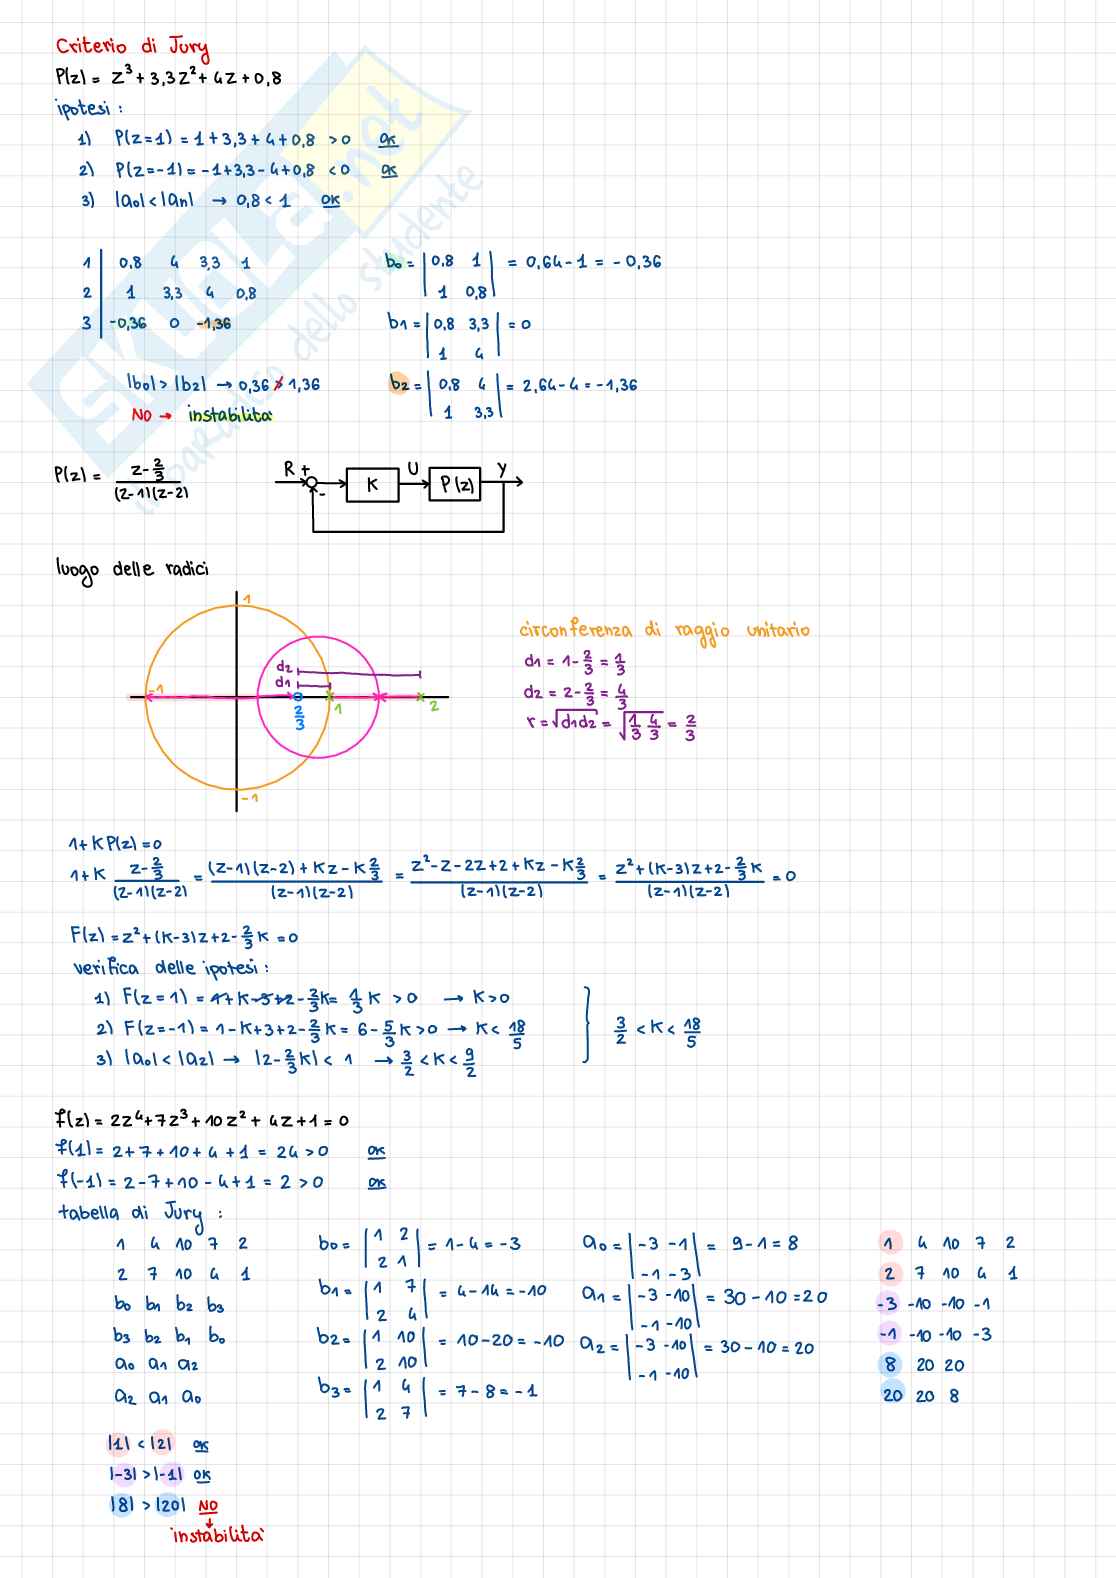 Criterio di Jury
P(z) = z³ + 3,3z² + 4z + 0,8
ipotesi :
1) P(z=1) = 1 + 3,3 + 4 + 0,8 > 0 OK
2) P(z=-1) = -1 + 3,3 - 4 + 0,8 < 0 OK
3) |a0| < |an| → 0,8 < 1 OK
1 | 0,8 4 3,3 1
2 | 1 3,3 4 0,8
3 | -0,36 0 -1,36
|b0| > |b2| → 0,36 ≯ 1,36
NO → instabilità
b0 = | 0,8 1 | = 0,64 - 1 = - 0,36
| 1 0,8 |
b1 = | 0,8 3,3 | = 0
| 1 4 |
b2 = | 0,8 4 | = 2,64 - 4 = -1,36
| 1 3,3 |
SKUOLA.net
il paradiso dello studente
P(z) = (z - 2/3) / ((z-1)(z-2))
R + - K U P(z) Y
luogo delle radici
1
d2
d1
-1 2/3 1 2
-1
circonferenza di raggio unitario
d1 = 1 - 2/3 = 1/3
d2 = 2 - 2/3 = 4/3
r = √(d1d2) = √(1/3 4/3) = 2/3
1 + K P(z) = 0
1 + K (z - 2/3) / ((z-1)(z-2)) = ((z-1)(z-2) + Kz - K 2/3) / ((z-1)(z-2)) = (z² - z - 2z + 2 + Kz - K 2/3) / ((z-1)(z-2)) = (z² + (K-3)z + 2 - 2/3 K) / ((z-1)(z-2)) = 0
F(z) = z² + (K-3)z + 2 - 2/3 K = 0
verifica delle ipotesi :
1) F(z=1) = 1 + K - 3 + 2 - 2/3 K = 1/3 K > 0 → K > 0
2) F(z=-1) = 1 - K + 3 + 2 - 2/3 K = 6 - 5/3 K > 0 → K < 18/5
3) |a0| < |a2| → |2 - 2/3 K| < 1 → 3/2 < K < 9/2
} 3/2 < K < 18/5
f(z) = 2z⁴ + 7z³ + 10z² + 4z + 1 = 0
f(1) = 2 + 7 + 10 + 4 + 1 = 24 > 0 OK
f(-1) = 2 - 7 + 10 - 4 + 1 = 2 > 0 OK
tabella di Jury :
1 4 10 7 2
2 7 10 4 1
b0 b1 b2 b3
b3 b2 b1 b0
a0 a1 a2
a2 a1 a0
b0 = | 1 2 | = 1 - 4 = -3
| 2 1 |
b1 = | 1 7 | = 4 - 14 = -10
| 2 4 |
b2 = | 1 10 | = 10 - 20 = -10
| 2 10 |
b3 = | 1 4 | = 7 - 8 = -1
| 2 7 |
a0 = | -3 -1 | = 9 - 1 = 8
| -1 -3 |
a1 = | -3 -10 | = 30 - 10 = 20
| -1 -10 |
a2 = | -3 -10 | = 30 - 10 = 20
| -1 -10 |
1 4 10 7 2
2 7 10 4 1
-3 -10 -10 -1
-1 -10 -10 -3
8 20 20
20 20 8
|1| < |2| OK
|-3| > |-1| OK
|8| > |20| NO
↓
instabilità